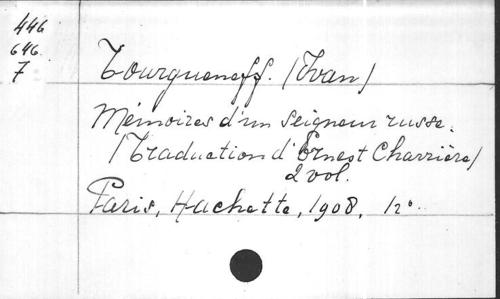 446
646
7
Tourgueneff. (Ivan)
Mémoires d'un seigneur russe.
(Traduction d'Ernest Charrière)
2 vol.
Paris, Hachette, 1908, 12°